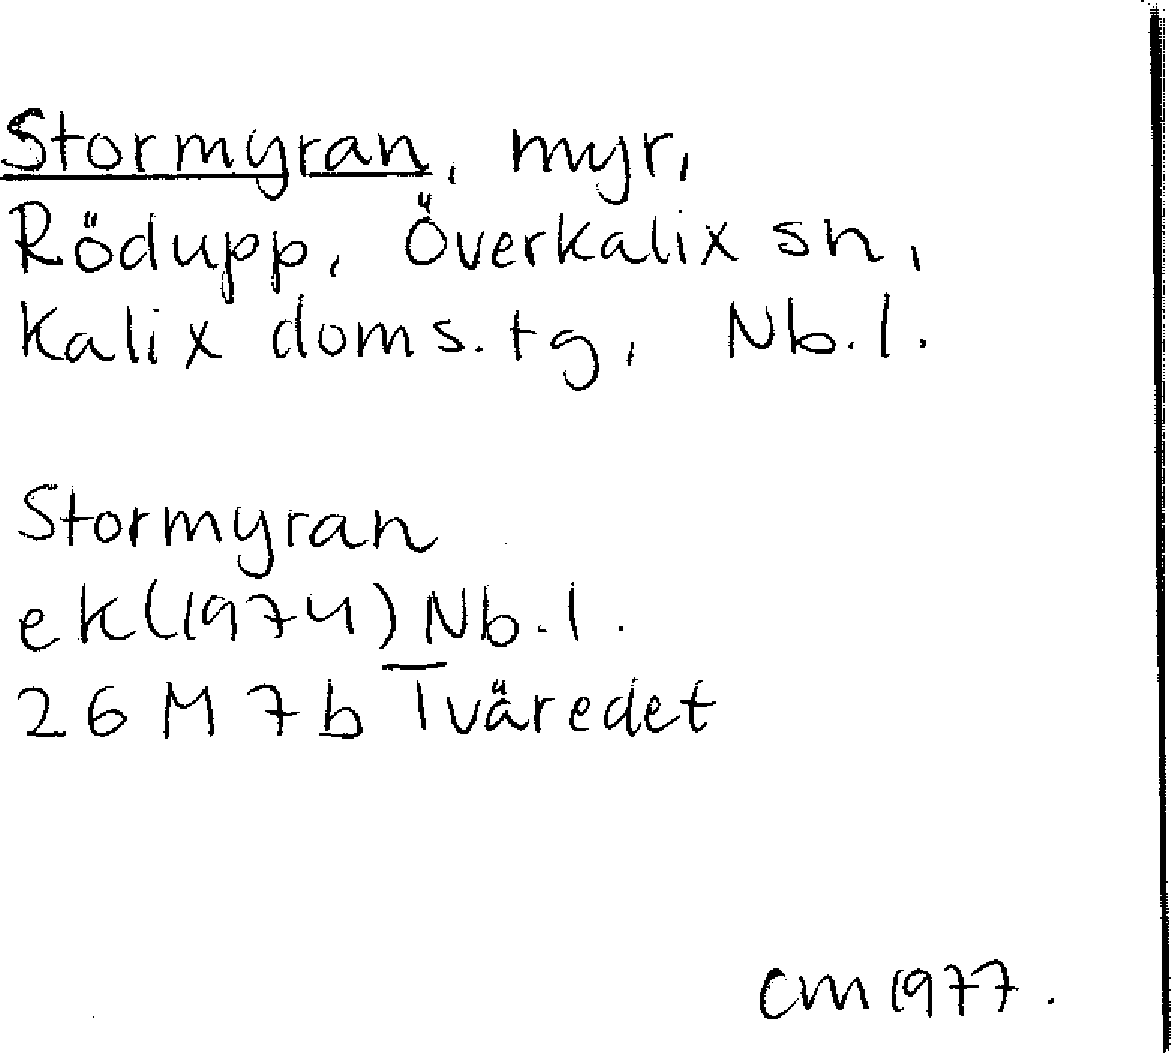 Stormyran, myr,
Rödupp, Överkalix sn,
Kalix doms.tg, Nb.l.
Stormyran
ek(1974) Nb.l.
26 M 7b Tväredet
CM 1977.